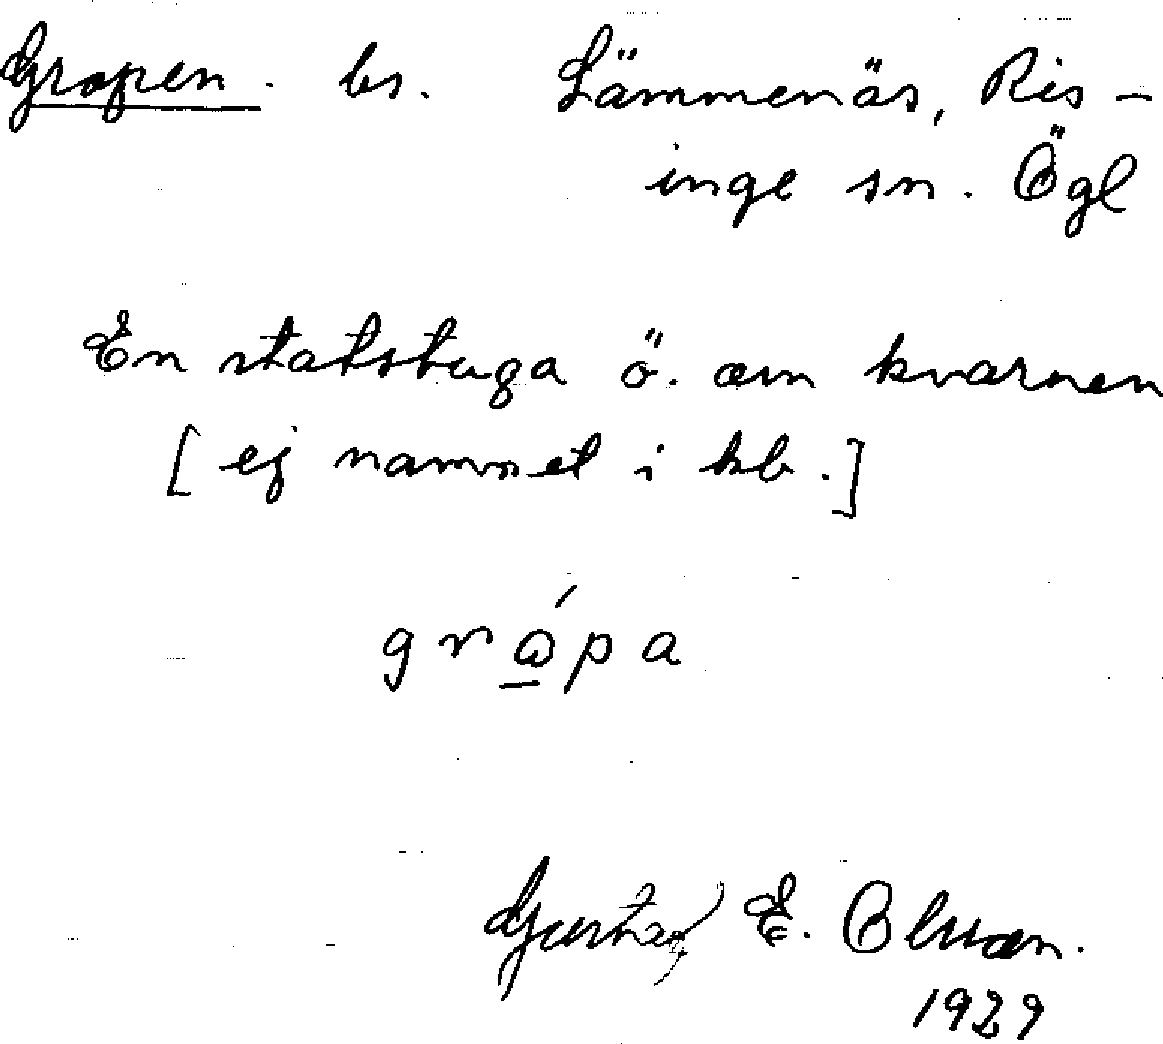 Gropen. bs. Lämmenäs, Ris-
inge sn. Ögl
En statstuga ö. om kvarnen
[ej namnet i kb.]
gro̲ṕa
Gustav E. Olsson.
1929